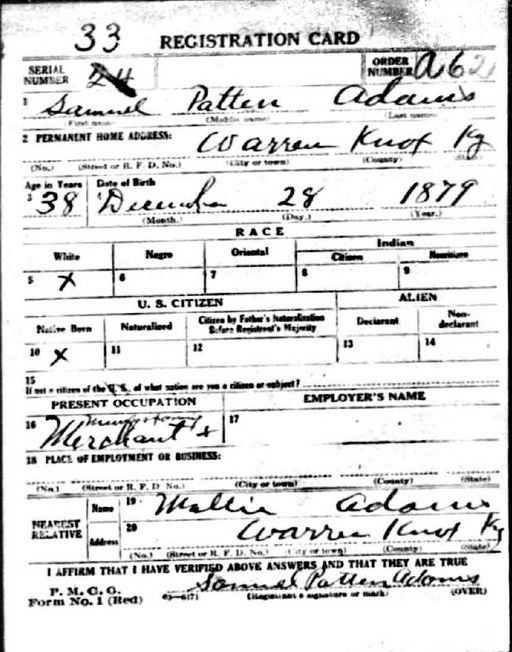 33 REGISTRATION CARD
SERIAL NUMBER 24 ORDER NUMBER A62
1 Samuel Patten Adams
(First name) (Middle name) (Last name)
2 PERMANENT HOME ADDRESS: Warren Knox Ky
(No.) (Street or R. F. D. No.) (City or town) (County) (State)
Age in Years Date of Birth
3 38 4 December 28 1879
(Month.) (Day.) (Year.)
RACE
White Negro Oriental Indian
Citizen Noncitizen
5 X 6 7 8 9
U. S. CITIZEN ALIEN
Native Born Naturalized Citizen by Father's Naturalization Before Registrant's Majority Declarant Non-declarant
10 X 11 12 13 14
15
If not a citizen of the U. S. of what nation are you a citizen or subject?
PRESENT OCCUPATION EMPLOYER'S NAME
16 Merchant & 17
18 PLACE OF EMPLOYMENT OR BUSINESS:
(No.) (Street or R. F. D. No.) (City or town) (County) (State)
NEAREST RELATIVE Name 19 Mallie Adams
Address 20 Warren Knox Ky
(No.) (Street or R. F. D. No.) (City or town) (County) (State)
I AFFIRM THAT I HAVE VERIFIED ABOVE ANSWERS AND THAT THEY ARE TRUE
P. M. G. O.
Form No. 1 (Red) 03-6171 Samuel Patten Adams
(Registrant's signature or mark) (OVER)